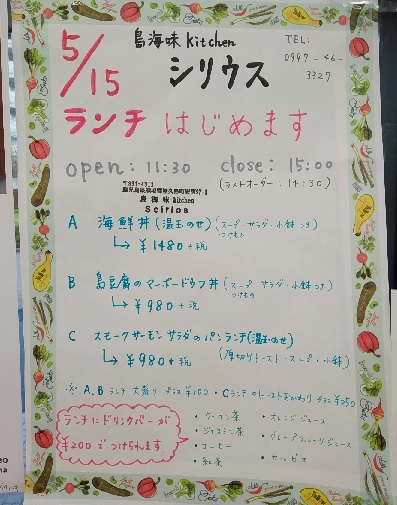 5/15
島海味 kitchen
シリウス
TEL:
0997-46-
3327
ランチ はじめます
open: 11:30 close: 15:00
(ラストオーダー: 14:30)
島海味 kitchen
Scirios
A 海鮮丼(温玉のせ)(スープ・サラダ・小鉢つき)
つけもの
↳ ¥1480+税
B 島豆腐のマーボードウフ丼(スープ サラダ・小鉢つき)
つけもの
↳ ¥980+税
C スモークサーモンサラダのパンランチ(温玉のせ)
↳ ¥980+税 (厚切りトースト・スープ・小鉢)
※ A.B ランチ 大盛り プラス ¥100 ・Cランチのトーストおかわり プラス ¥250
ランチにドリンクバーが
¥200で つけられます
・ウーロン茶 ・オレンジジュース
・ジャスミン茶 ・グレープフルーツジュース
・コーヒー ・カルピス
・紅茶